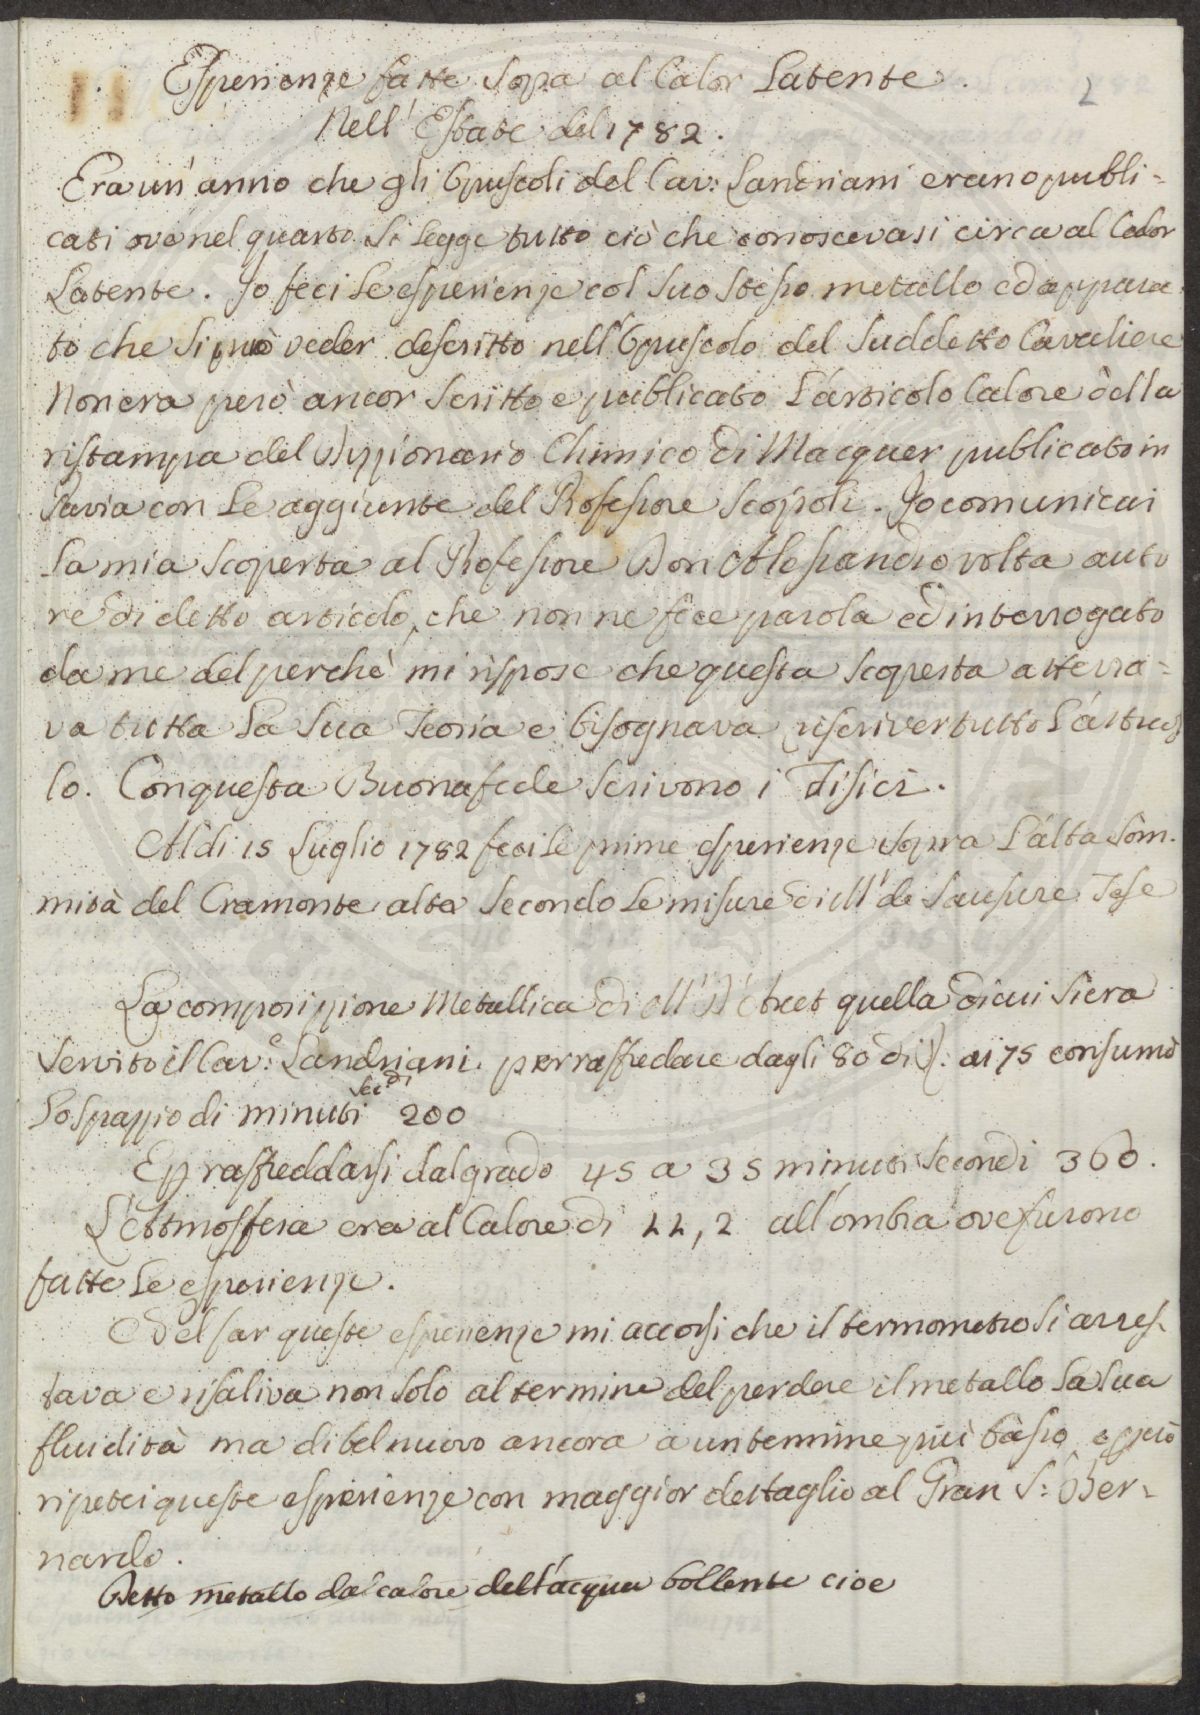 Esperienze fatte Sopra al Calor Latente.
2
Nell' Estate del 1782.
Era un' anno che gli Opuscoli del Cav: Landriani erano publi-
cati ove nel quarto Si Legge tutto ciò che conoscevasi circa al Calor
Latente. Io feci Le esperienze col Suo Stesso metallo ed appara
to che Si può veder descritto nell' Opuscolo del Suddetto Cavaliere
Non era però ancor Scritto e publicato L'articolo Calore della
ristampa del Dizzionario Chimico di Macquer publicato in
Pavia con Le aggiunte del Professore Scopoli. Io comunicai
La mia Scoperta al Professore Don Alessandro volta auto
re di detto articolo, che non ne fece parola ed interrogato
da me del perchè mi rispose che questa Scoperta atterra-
va tutta La Sua Teoria e bisognava riscriver tutto L'artico
lo. Con questa Buona fede Scrivono i Fisici.
Al di 15 Luglio 1782 feci Le prime esperienze Sopra L'alta Som-
mità del Cramonte alta Secondo Le misure di M' de Sausure Tese
La composizzione Metallica di M' D'Arcet quella di cui Si era
Servito il Cav:e Landriani per raffredare dagli 80 di R: ai 75 consumò
Lo Spazzio di minuti Sec:di 200
E p raffreddarsi dal grado 45 a 35 minuti Secondi 360.
L'Attmosfera era al Calore di 11,2 all'ombra ove furono
fatte Le esperienze.
Nel far queste esperienze mi accorsi che il termometro Si arres-
tava e risaliva non Solo al termine del perdere il metallo La Sua
fluidità ma di bel nuovo ancora a un termine più basso e però
ripetei queste esperienze con maggior dettaglio al Gran S: Ber-
nardo.
Detto metallo dal calore dell'acqua bollente cioe